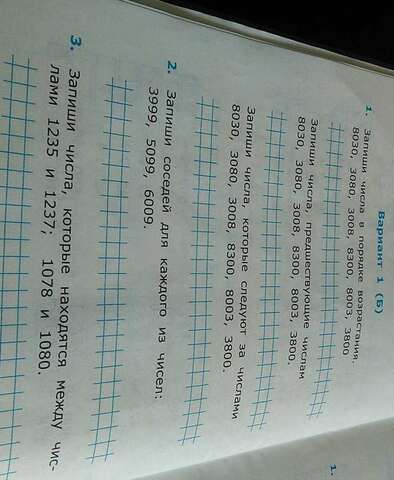 Вариант 1 (Б)
1. Запиши числа в порядке возрастания.
8030, 3080, 3008, 8300, 8003, 3800
Запиши числа, предшествующие числам
8030, 3080, 3008, 8300, 8003, 3800.
Запиши числа, которые следуют за числами
8030, 3080, 3008, 8300, 8003, 3800.
2. Запиши соседей для каждого из чисел:
3999, 5099, 6009.
3. Запиши числа, которые находятся между чис-
лами 1235 и 1237; 1078 и 1080.
1.